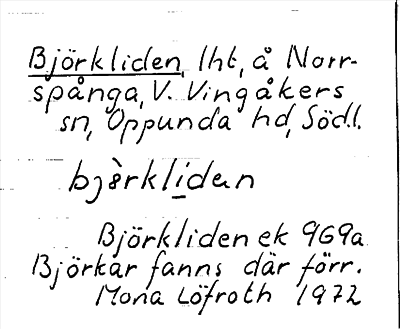 Björkliden, lht, å Norr-
spånga, V. Vingåkers
sn, Oppunda hd, Södl.
bjèrklidan
Björkliden ek 9G9a
Björkar fanns där förr.
Mona Löfroth 1972